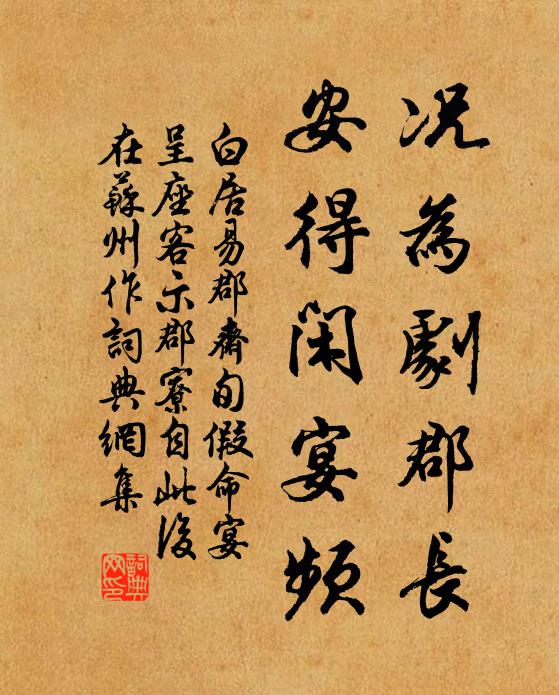 况為劇郡長
安得閑宴頻
白居易郡齋旬假命宴
呈座客示郡寮自此後
在蘇州作詞典網集
詞典
网印